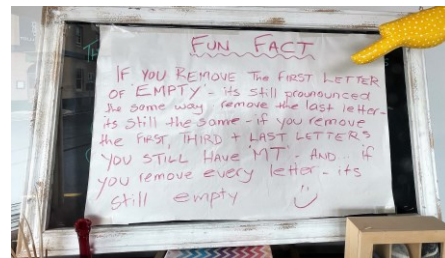 FUN FACT
IF YOU REMOVE THE FIRST LETTER
OF 'EMPTY' - its still pronounced
the same way remove the last letter-
its still the same - if you remove
the FIRST, THIRD + LAST LETTERS
YOU STILL HAVE 'MT' - AND... if
you remove every letter - its
still empty